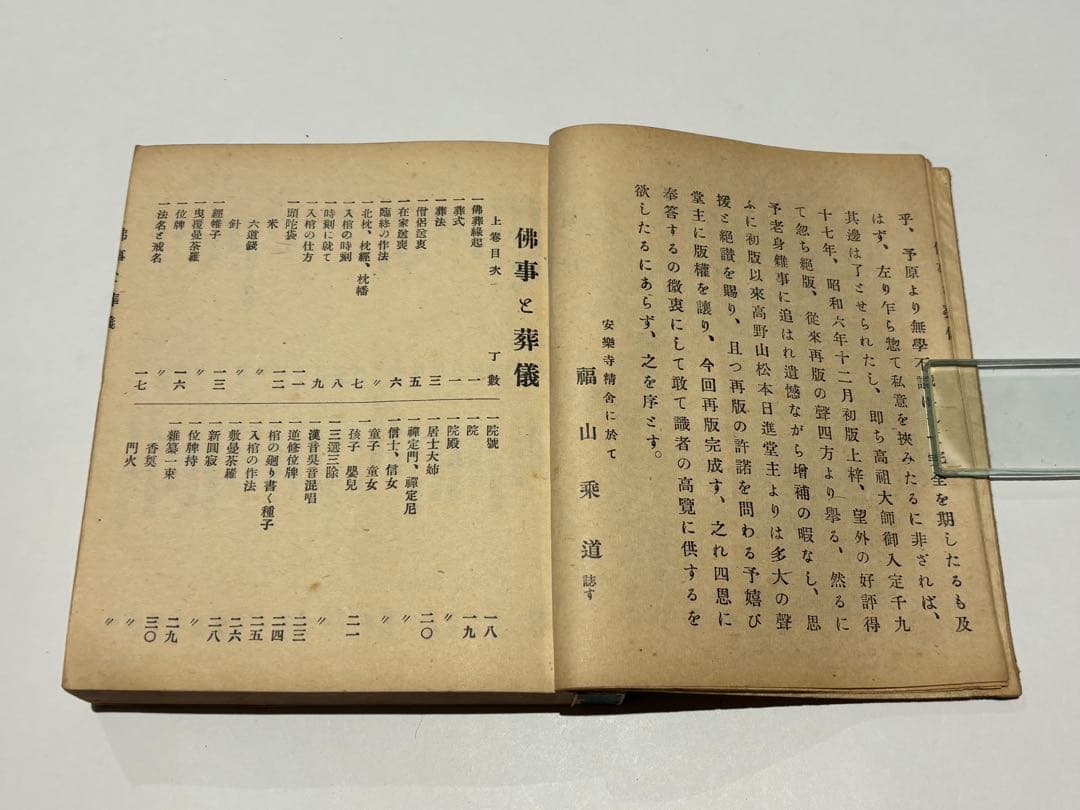 乎、予原より無學不
を期したるも及
はず、左り乍ら惣て私意を挾みたるに非ざれば、
其邊は了とせられたし、即ち高祖大師御入定千九
十七年、昭和六年十二月初版上梓、望外の好評得
て忽ち絶版、從來再版の聲四方より擧る、然るに
予老身雜事に追はれ遺憾ながら增補の暇なし、思
ふに初版以來高野山松本日進堂主よりは多大の聲
援と絶讃を賜り、且つ再版の許諾を問わる予嬉び
堂主に版權を讓り、今回再版完成す、之れ四恩に
奉答するの微衷にして敢て識者の高覽に供するを
欲したるにあらず、之を序とす。
安樂寺精舍に於て
福山乘道 誌す
佛事と葬儀
上卷目次 丁數
一佛葬緣起 一
一葬式 一
一葬法 三
一僧侶送喪 五
一在家送喪 六
一臨終の作法 〃
一北枕、枕經、枕幡 七
一入棺の時刻 八
一時刻に就て 九
一入棺の仕方 一一
一頭陀袋 一二
米 〃
六道錢 〃
針 一三
一經帷子 〃
一曳覆曼荼羅 一六
一位牌 〃
一法名と戒名 一七
一院號 一八
一院殿 一九
一居士大姉 〃
一禪定門、禪定尼 二〇
一信士、信女 〃
一童子 童女 〃
孩子 嬰兒 二一
一三選三除 〃
一漢音吳音混唱 二三
一逆修位牌 二四
一棺の廻り書く種子 二五
一入棺の作法 二六
一敷曼荼羅 二八
一新圓寂 二九
一位牌持 三〇
一雜纂一束 〃
香奠 〃
門火